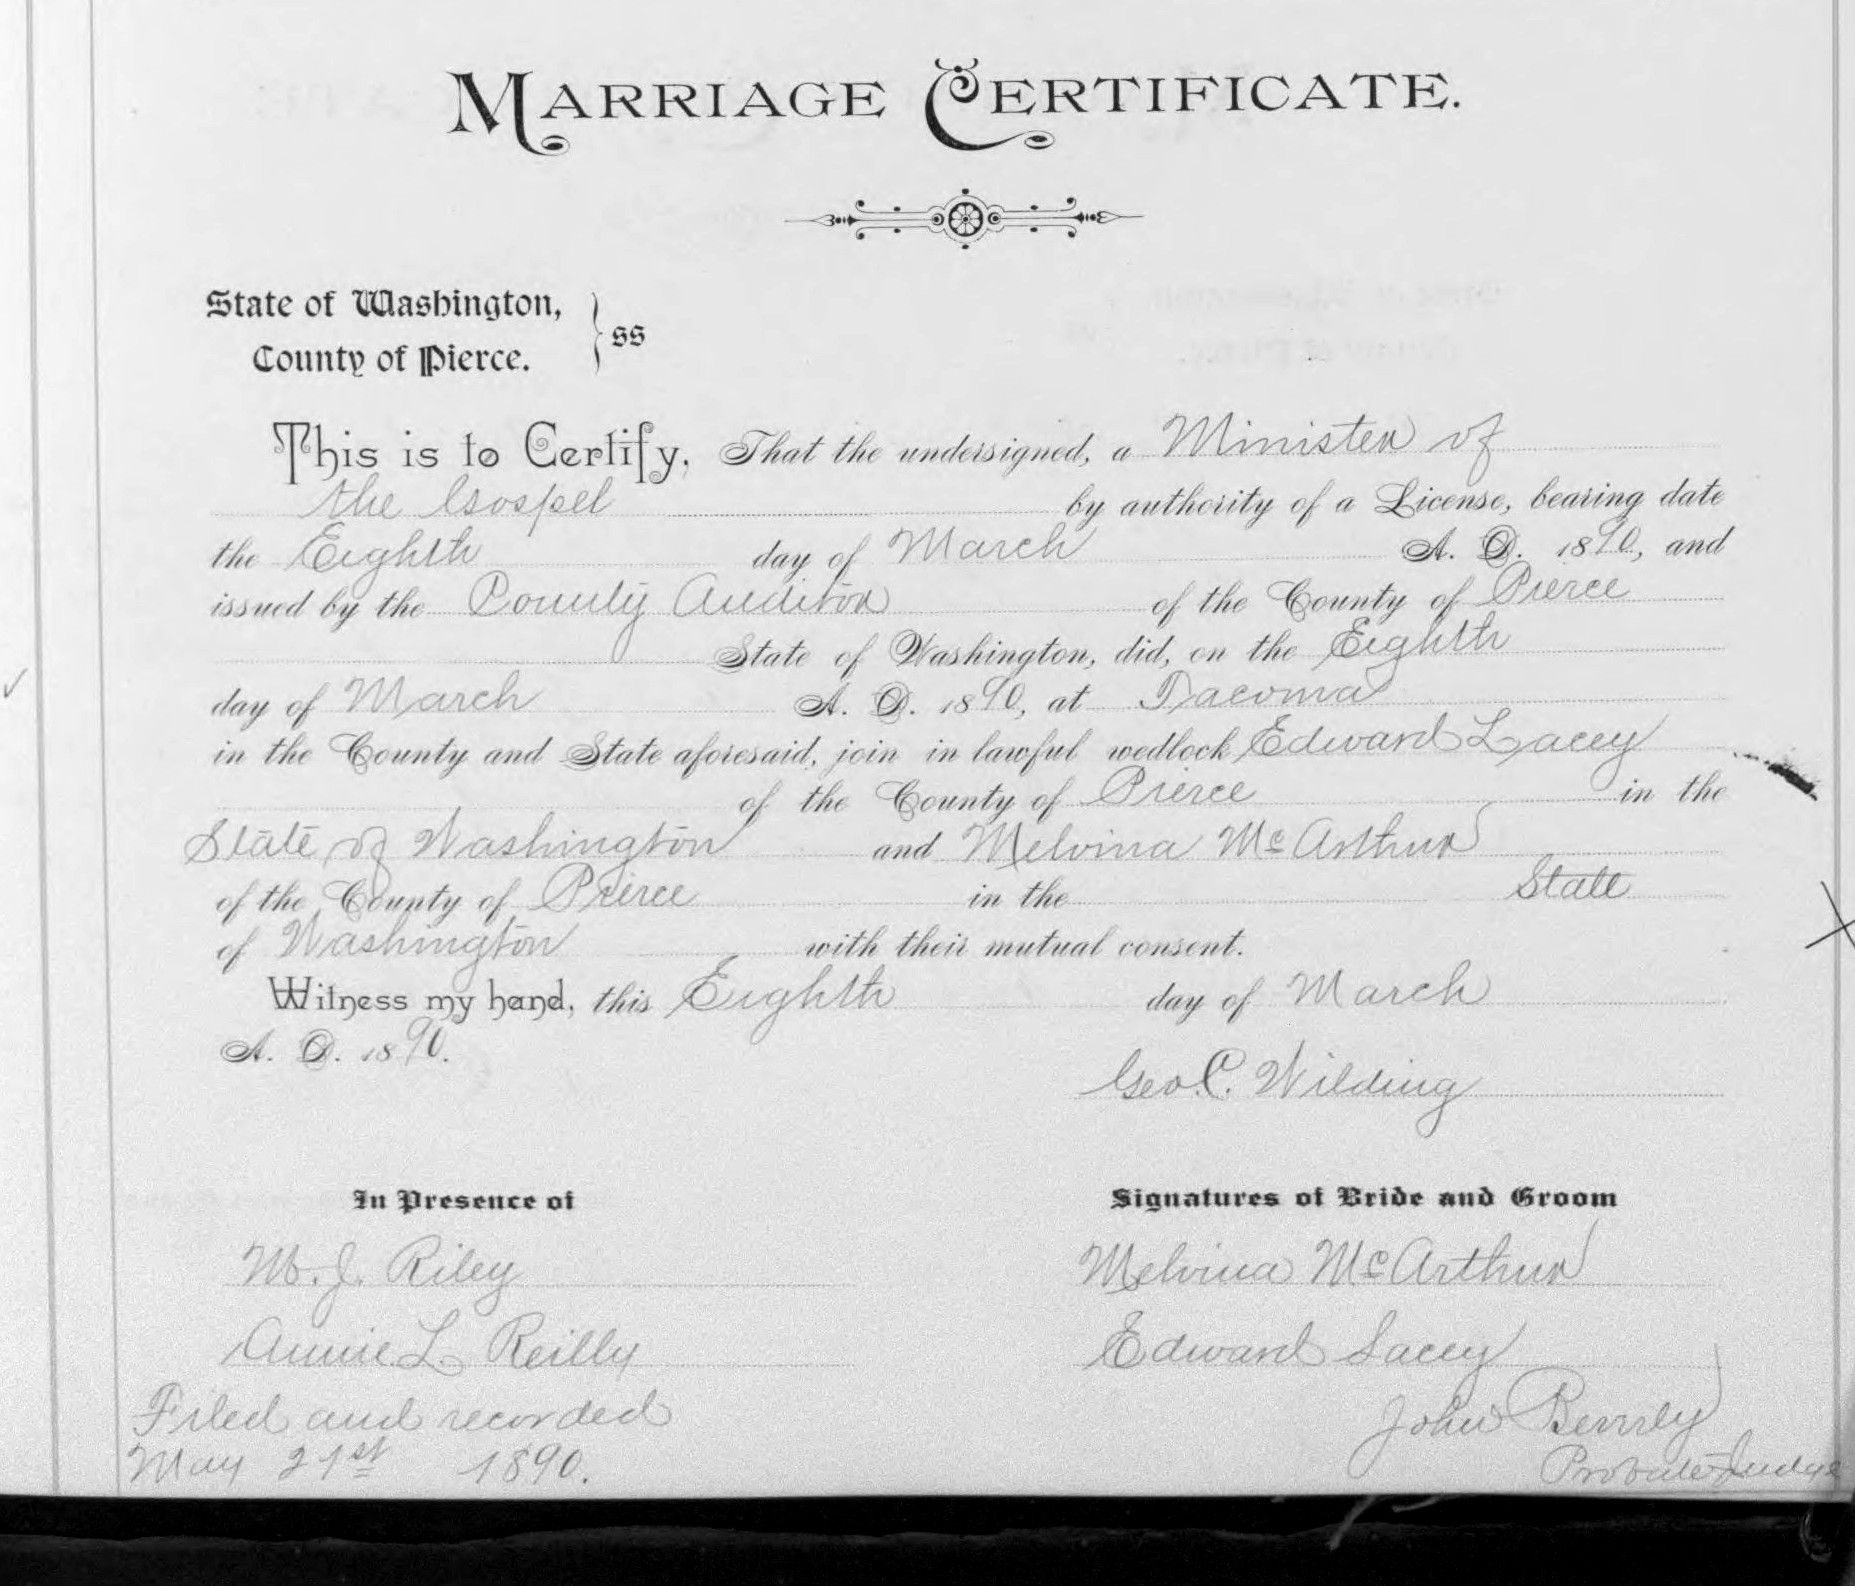 MARRIAGE CERTIFICATE.
State of Washington,
County of Pierce. } ss
This is to Certify, That the undersigned, a Minister of
the Gospel by authority of a License, bearing date
the Eighth day of March A. D. 1890, and
issued by the County Auditor of the County of Pierce
State of Washington, did, on the Eighth
day of March A. D. 1890, at Tacoma
in the County and State aforesaid, join in lawful wedlock Edward Lacey
of the County of Pierce in the
State of Washington and Melvina Mc Arthur
of the County of Pierce in the State
of Washington with their mutual consent.
Witness my hand, this Eighth day of March
A. D. 1890.
Geo. C. Wilding
In Presence of
M. J. Riley
Annie L. Reilly
Signatures of Bride and Groom
Melvina Mc Arthur
Edward Lacey
Filed and recorded
May 21st 1890.
John Beverly
Probate Judge